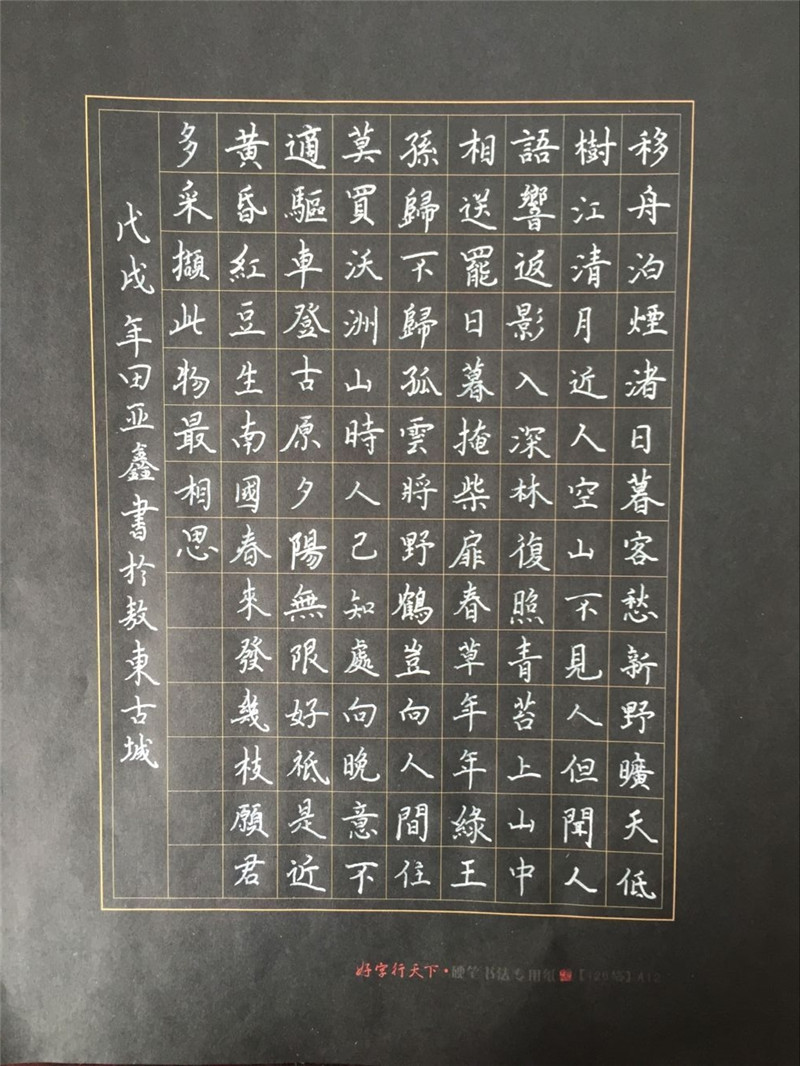 移舟泊煙渚日暮客愁新野曠天低
樹江清月近人空山不見人但聞人
語響返影入深林復照青苔上山中
相送罷日暮掩柴扉春草年年綠王
孫歸不歸孤雲將野鶴豈向人間住
莫買沃洲山時人已知處向晚意不
適驅車登古原夕陽無限好祗是近
黃昏紅豆生南國春來發幾枝願君
多采擷此物最相思
戊戌年田亚鑫書於敖東古城
好字行天下·硬笔书法专用纸